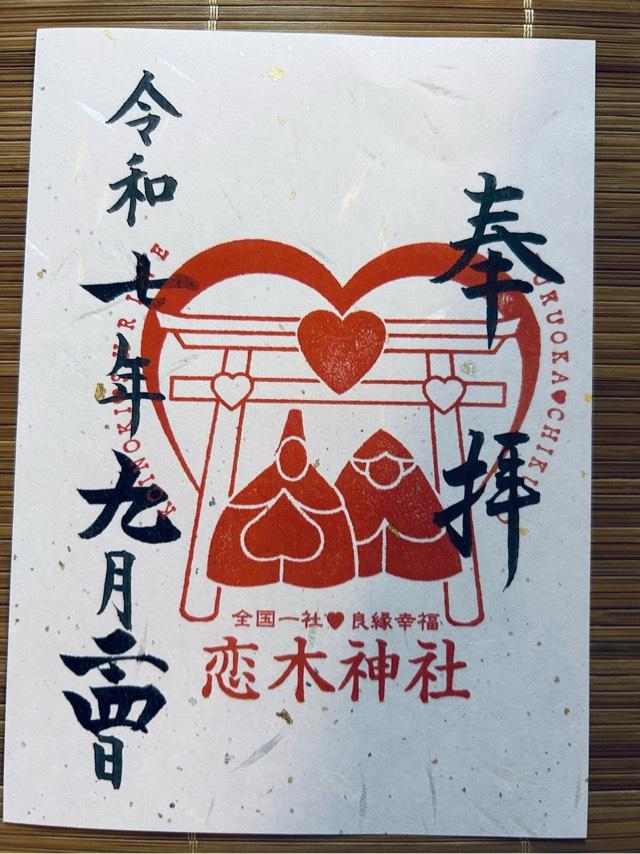 奉拝
FUKUOKA♥CHIKUGO
KOINOKI♥SHRINE
全国一社♥良縁幸福
恋木神社
令和七年九月二四日